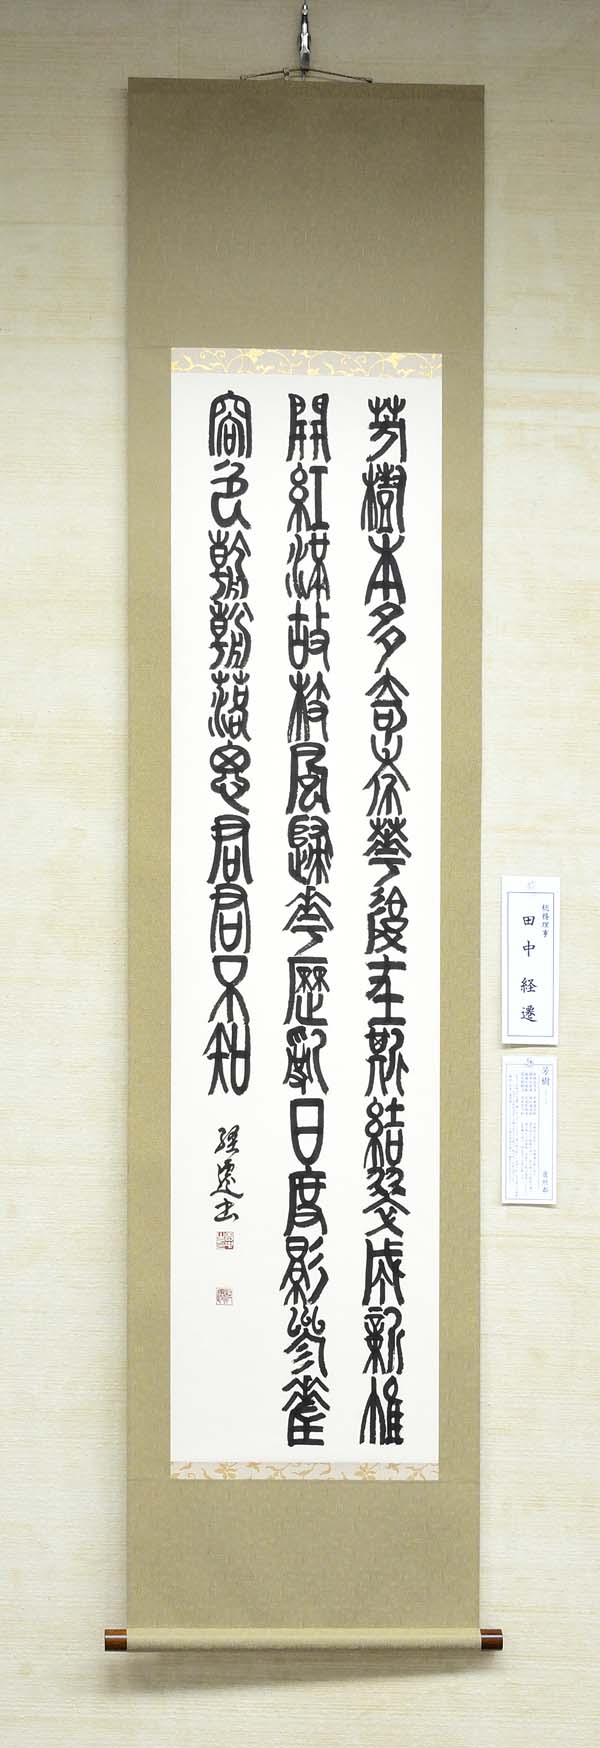 芳樹本多奇年華復在斯結翠成新帷
開紅滿故枝風歸花歷亂日度影參差
容色朝朝落思君君不知
経遷書
総務理事
田中 経遷
芳樹